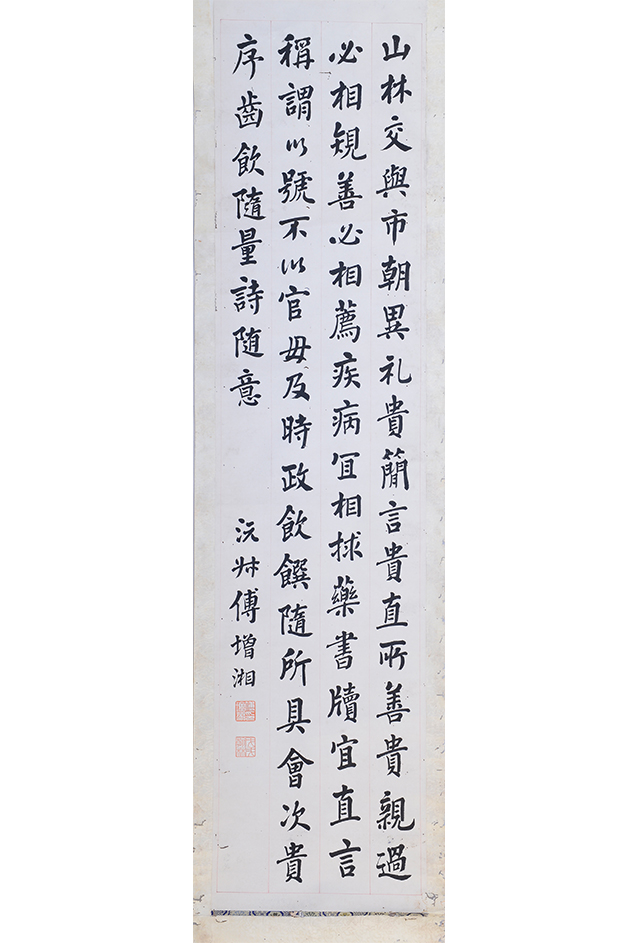 山林交與市朝異礼貴簡言貴直所善貴親過
必相規善必相薦疾病宜相捄藥書牘宜直言
稱謂以號不以官毋及時政飲饌隨所具會次貴
序齒飲隨量詩随意
沅尗傅增湘